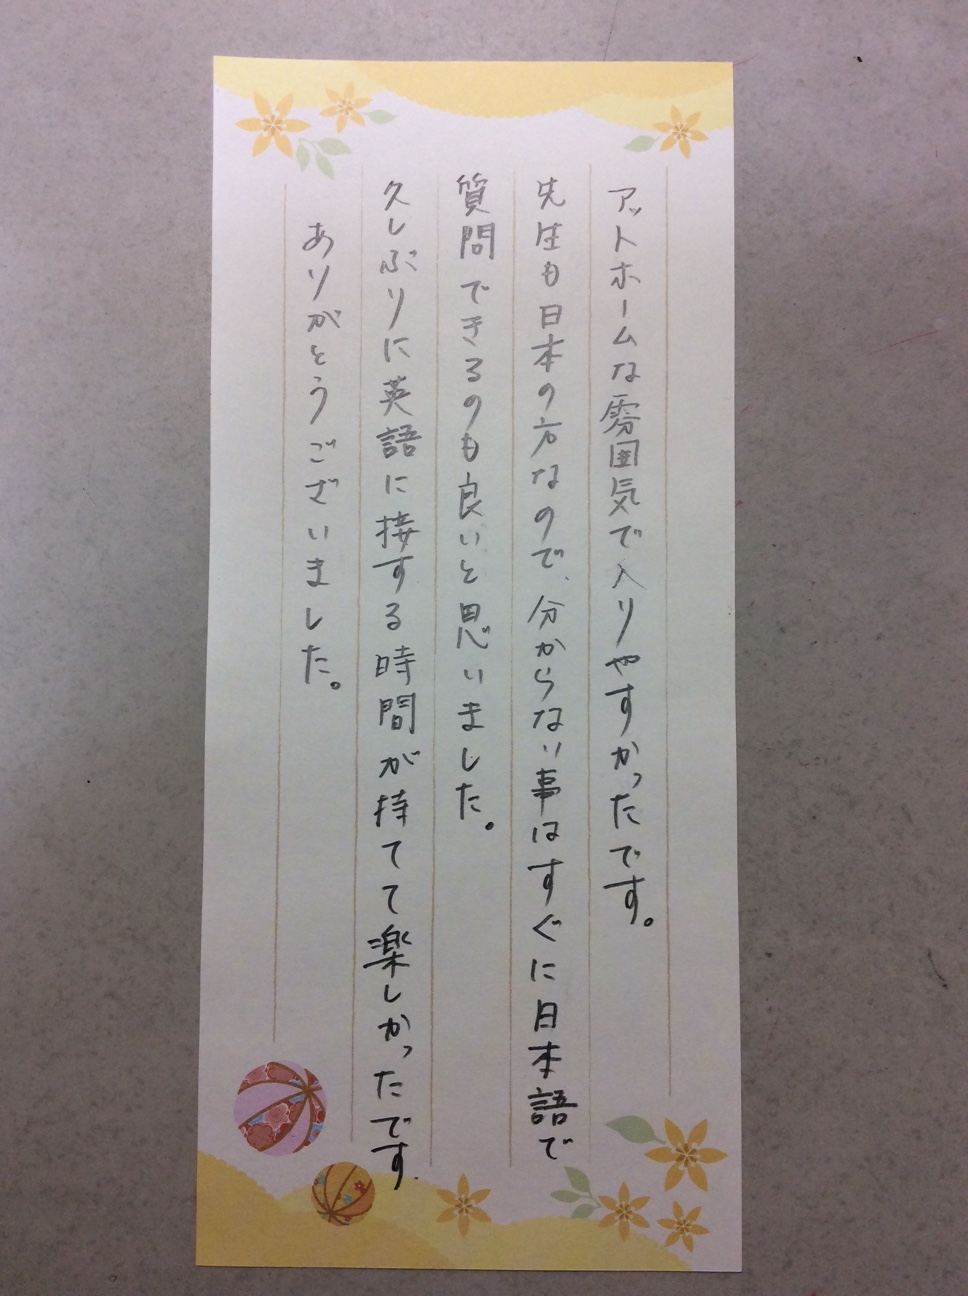 アットホームな雰囲気で入りやすかったです。
先生も日本の方なので、分からない事はすぐに日本語で
質問できるのも良いと思いました。
久しぶりに英語に接する時間が持てて楽しかったです.
ありがとうございました。